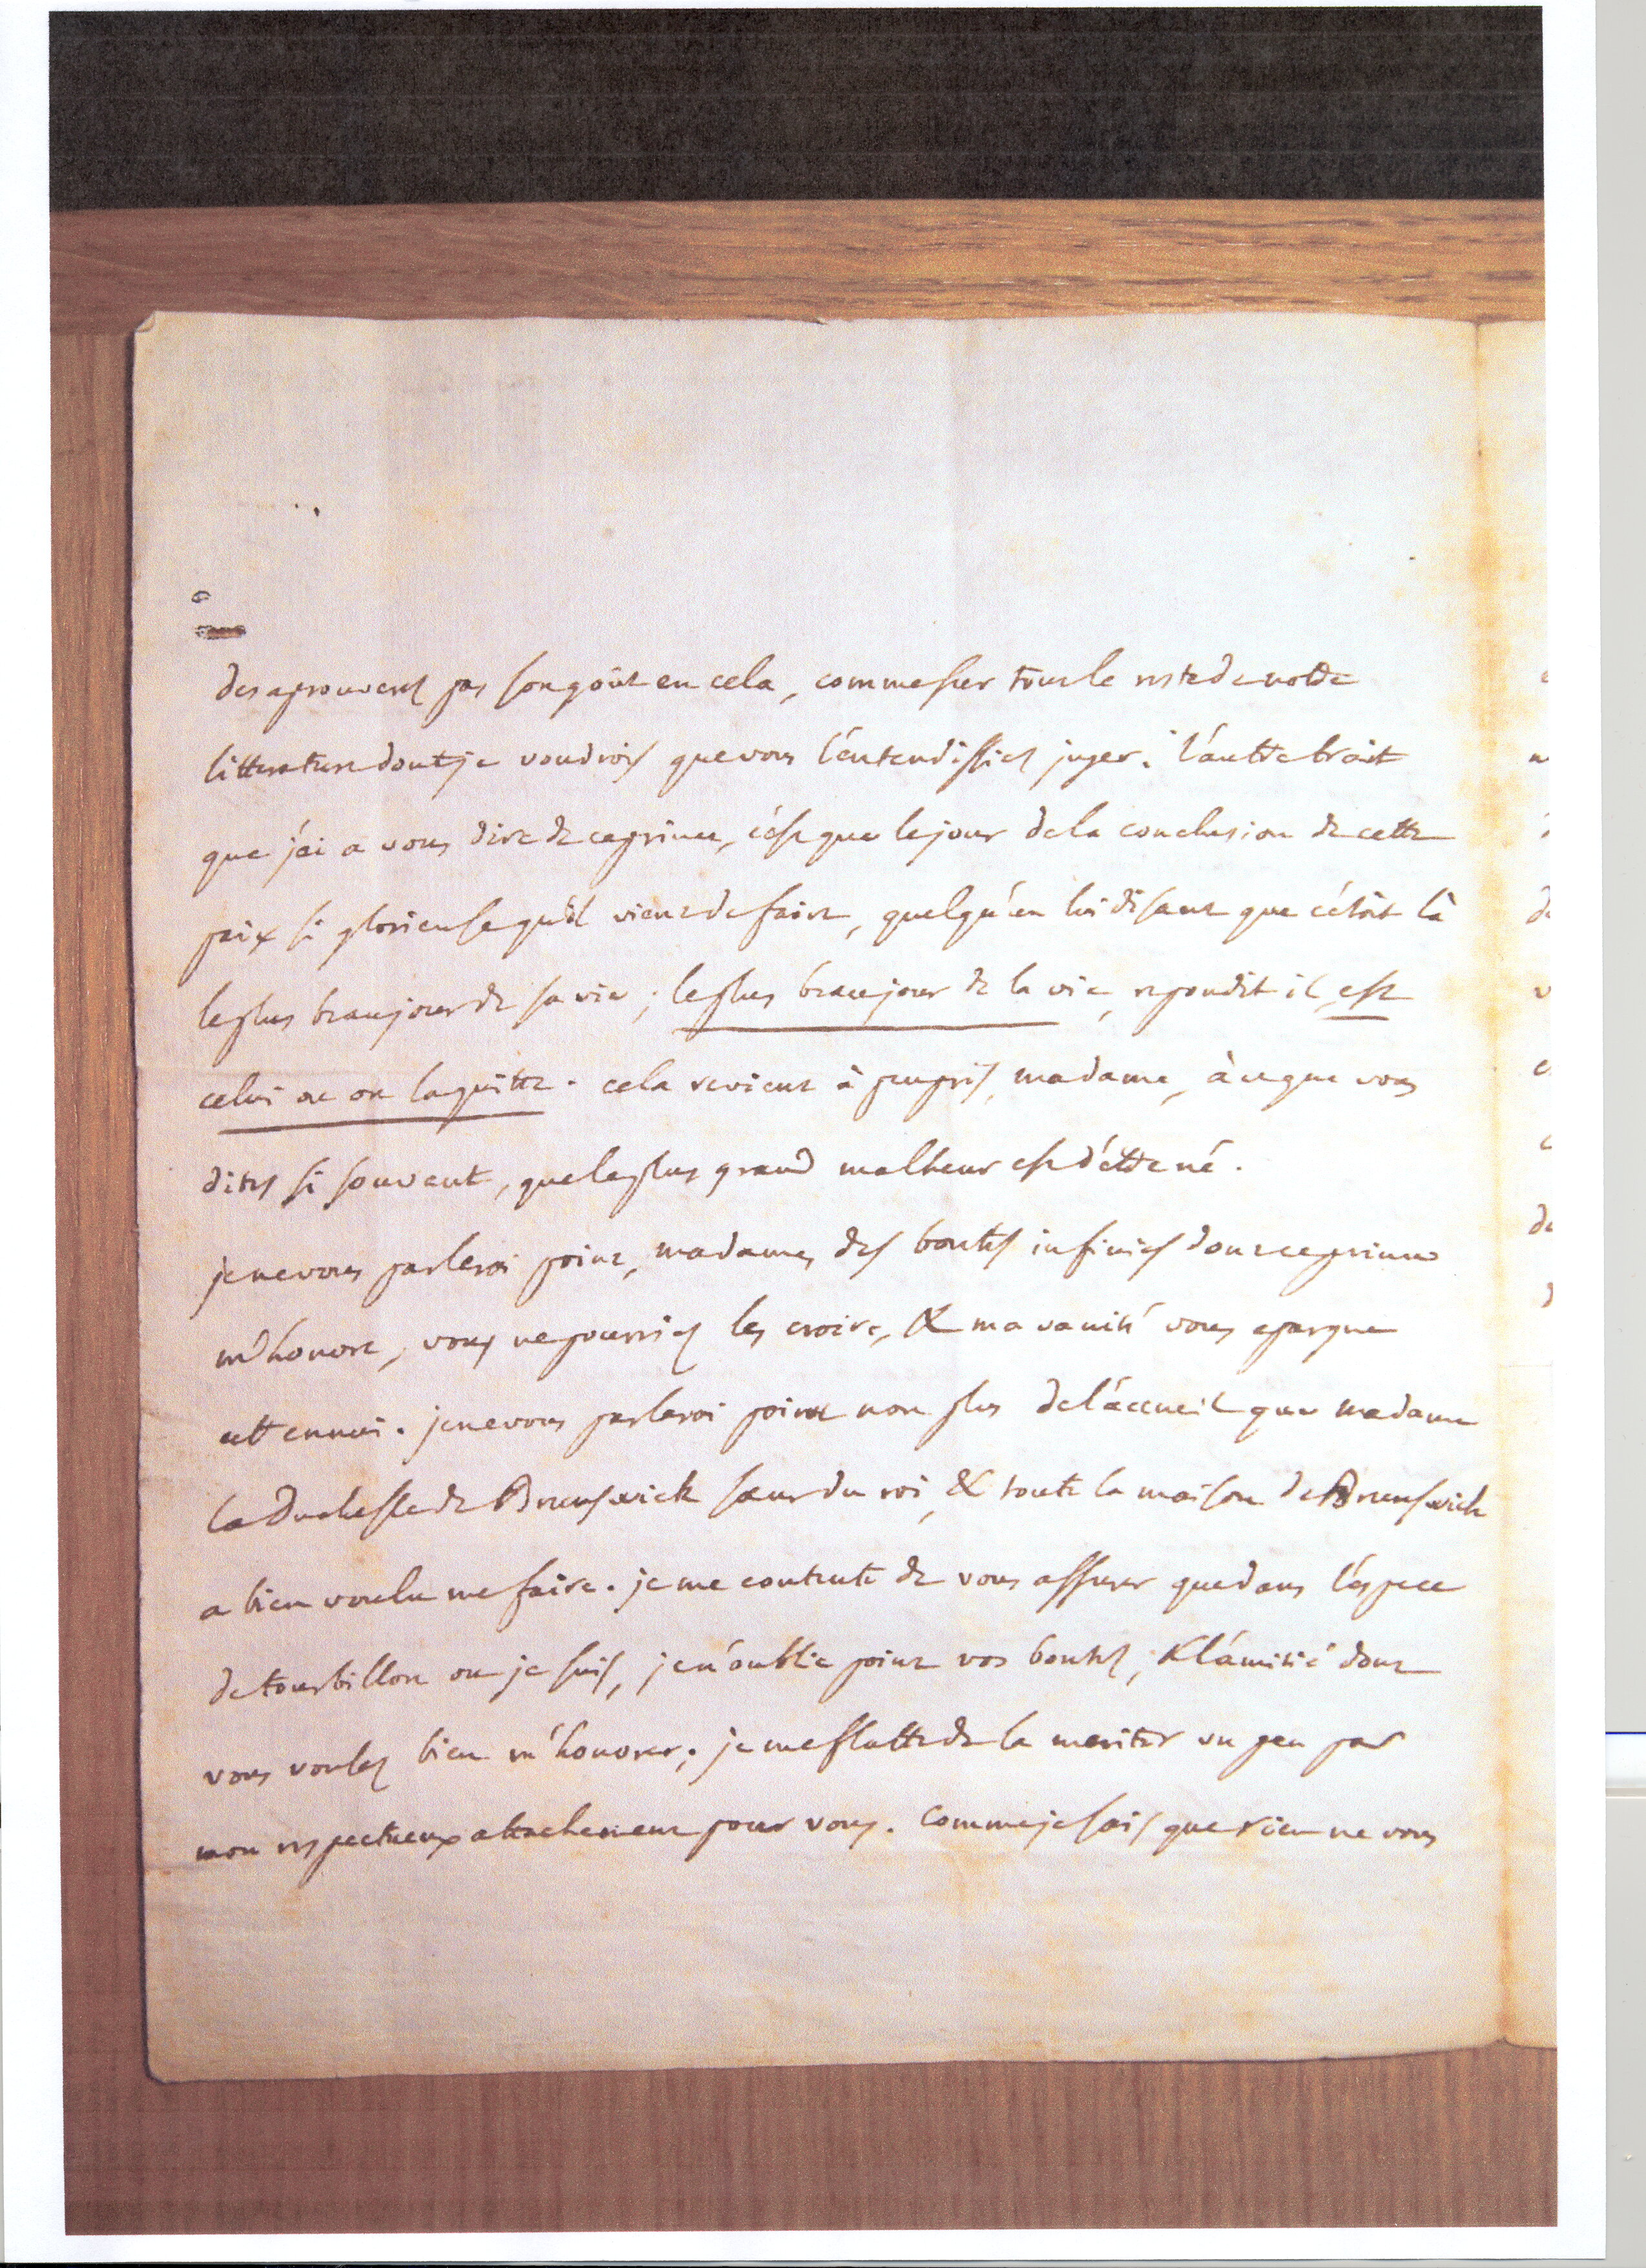 desaprouverez pas son goût en cela, comme sur tout le reste de notre
litterature dont je voudrois que vous l'entendissiez juger. l'autre trait
que j'ai a vous dire de ce prince, c'est que le jour de la conclusion de cette
paix si glorieuse qu'il vient de faire, quelqu'un lui disant que c'étoit là
le plus beau jour de sa vie ; le plus beau jour de la vie, repondit il, est
celui où on la quitte. cela revient à peu près, madame, à ce que vous
dites si souvent, que le plus grand malheur est d'être né.
je ne vous parlerai point, madame, des bontés infinies dont ce prince
m'honore, vous ne pourriez les croire, & ma vanité vous epargne
cet ennui. je ne vous parlerai point non plus de l'accueil que madame
la Duchesse de Brunswick sœur du roi, & toute la maison de Brunswick
a bien voulu me faire. je me contente de vous assurer que dans l'espece
de tourbillon ou je suis, je n'oublie point vos bontés, & l'amitié dont
vous voulez bien m'honorer ; je me flatte de la meriter un peu par
mon respectueux attachement pour vous. Comme je sais que rien ne vous